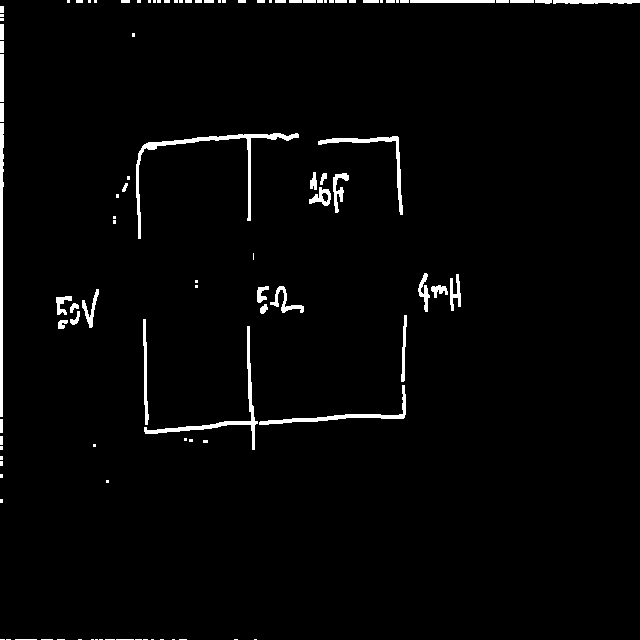 16F
50V
5Ω
4mH